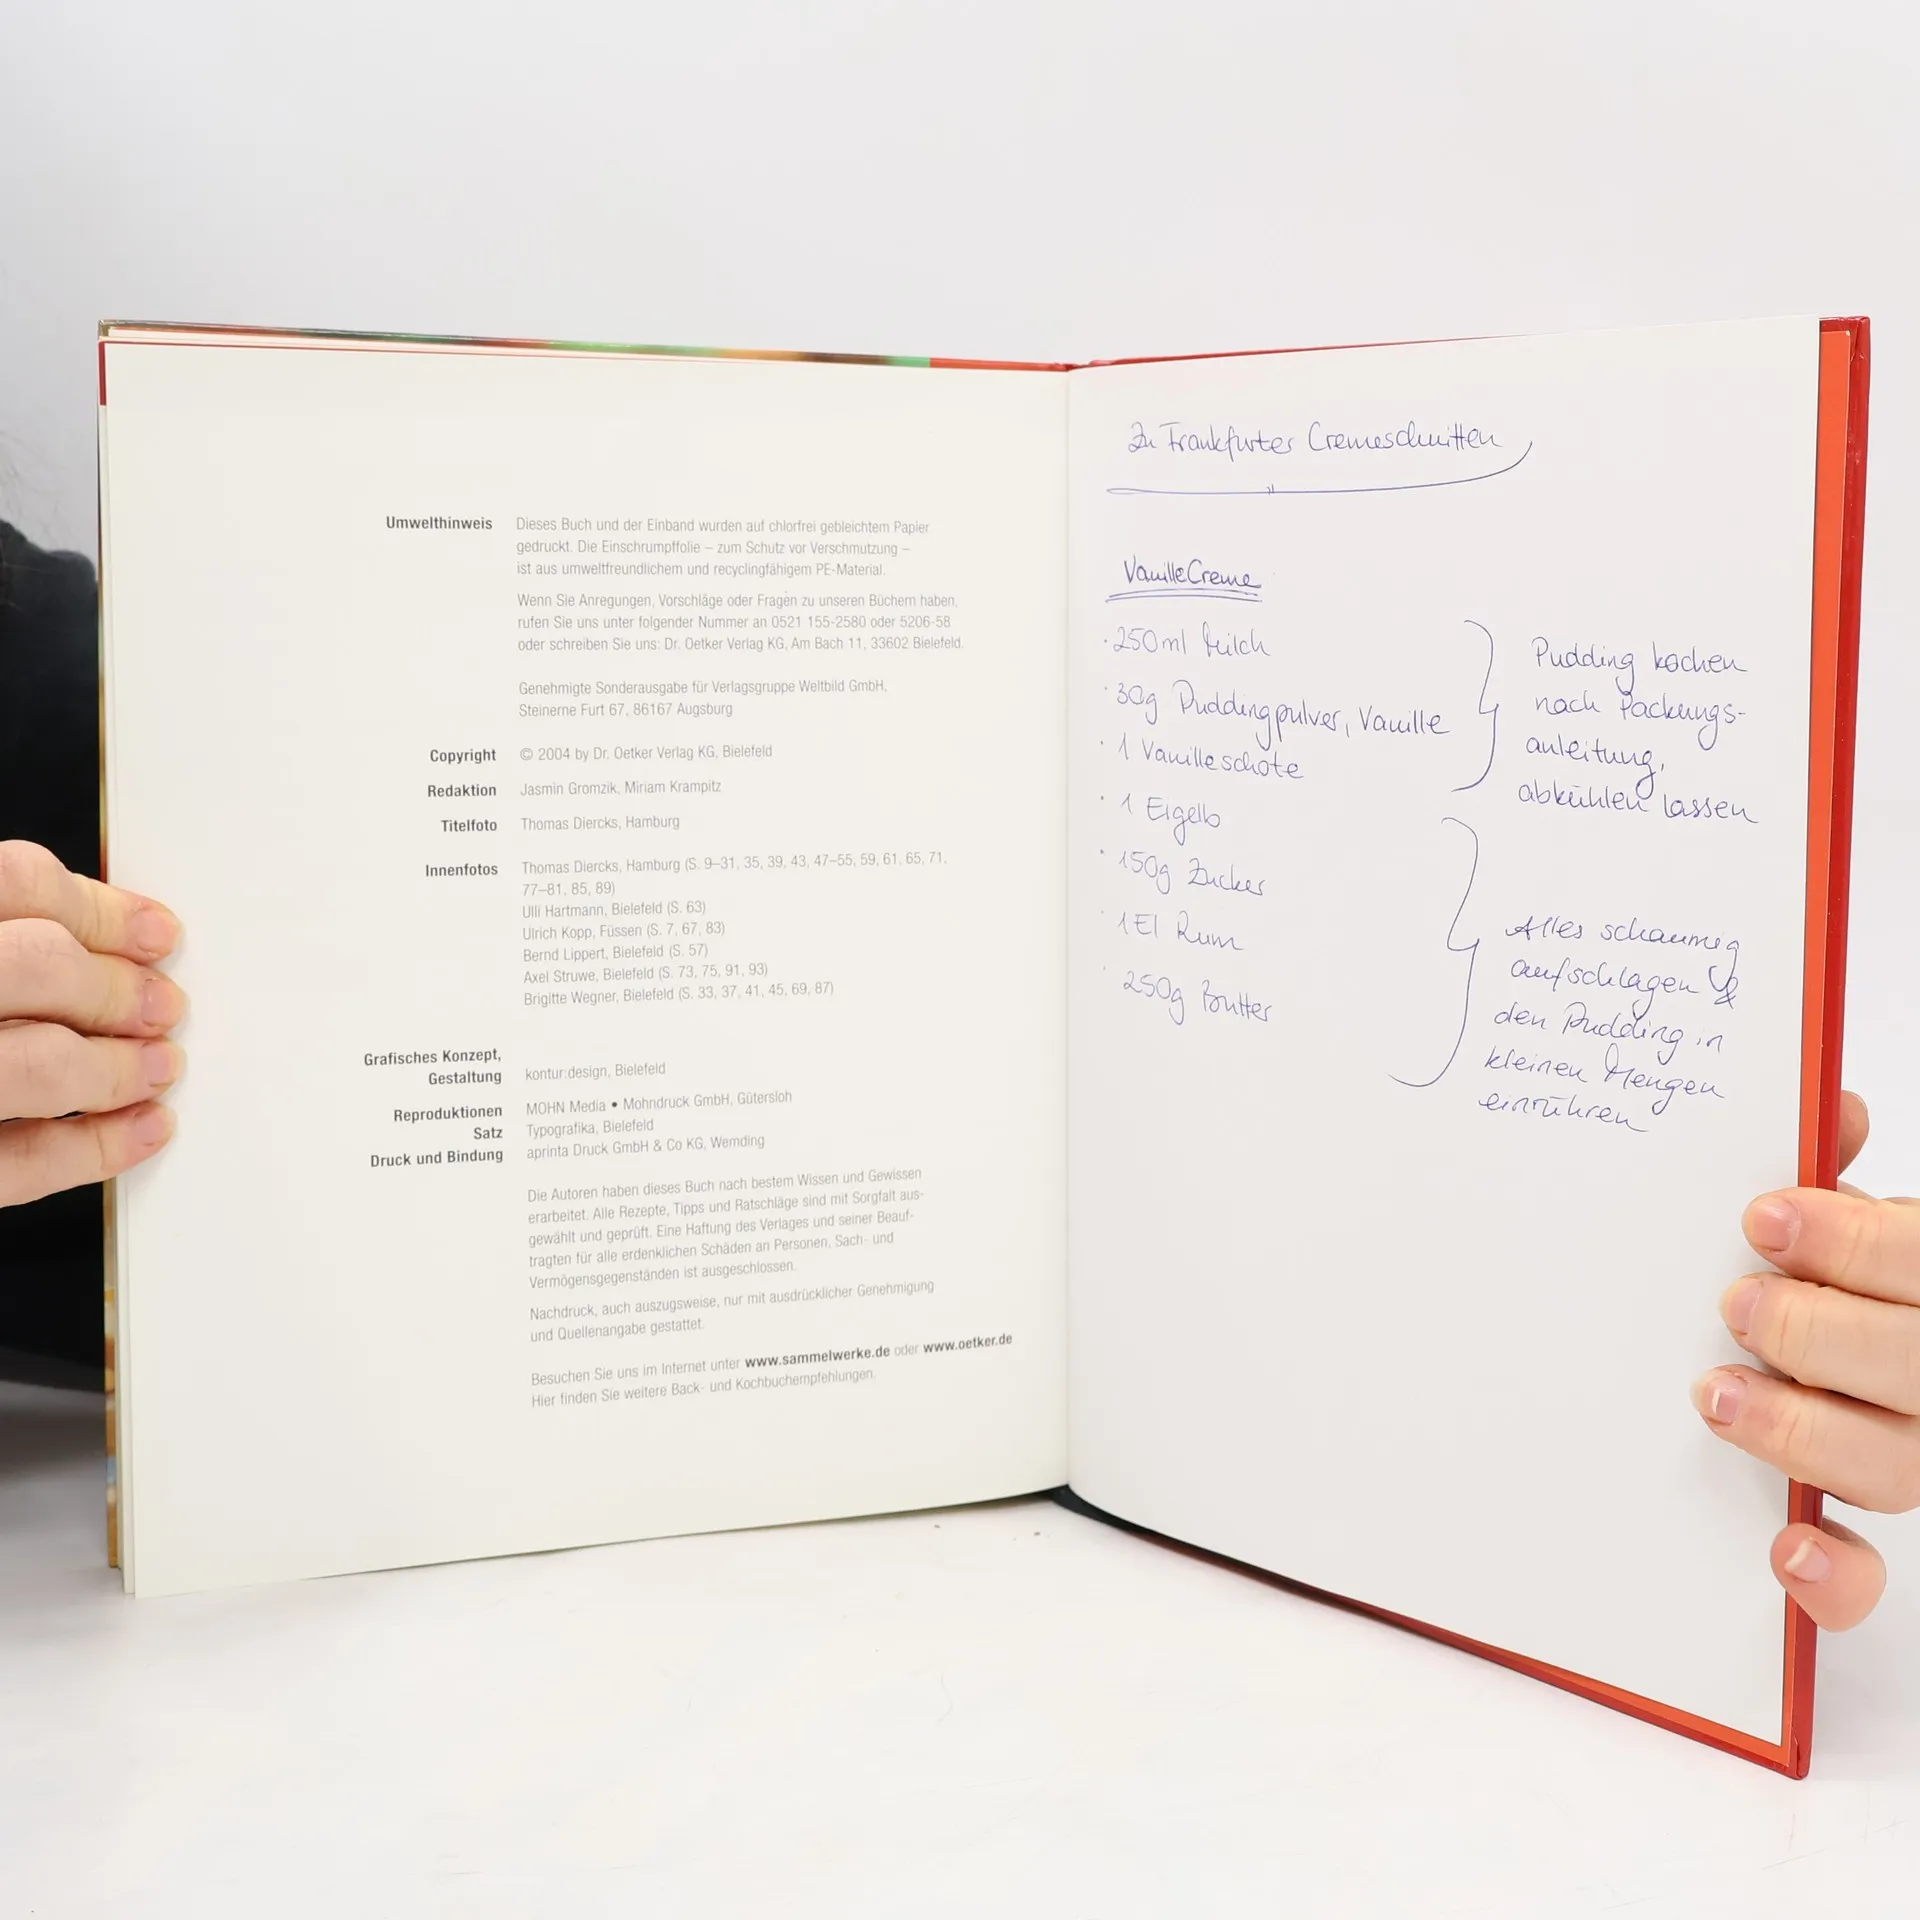 Umwelthinweis Dieses Buch und der Einband wurden auf chlorfrei gebleichtem Papier
gedruckt. Die Einschrumpffolie – zum Schutz vor Verschmutzung –
ist aus umweltfreundlichem und recyclingfähigem PE-Material.
Wenn Sie Anregungen, Vorschläge oder Fragen zu unseren Büchern haben,
rufen Sie uns unter folgender Nummer an 0521 155-2580 oder 5206-58
oder schreiben Sie uns: Dr. Oetker Verlag KG, Am Bach 11, 33602 Bielefeld.
Genehmigte Sonderausgabe für Verlagsgruppe Weltbild GmbH,
Steinerne Furt 67, 86167 Augsburg
Copyright © 2004 by Dr. Oetker Verlag KG, Bielefeld
Redaktion Jasmin Gromzik, Miriam Krampitz
Titelfoto Thomas Diercks, Hamburg
Innenfotos Thomas Diercks, Hamburg (S. 9–31, 35, 39, 43, 47–55, 59, 61, 65, 71,
77–81, 85, 89)
Ulli Hartmann, Bielefeld (S. 63)
Ulrich Kopp, Füssen (S. 7, 67, 83)
Bernd Lippert, Bielefeld (S. 57)
Axel Struwe, Bielefeld (S. 73, 75, 91, 93)
Brigitte Wegner, Bielefeld (S. 33, 37, 41, 45, 69, 87)
Grafisches Konzept,
Gestaltung kontur:design, Bielefeld
Reproduktionen MOHN Media • Mohndruck GmbH, Gütersloh
Satz Typografika, Bielefeld
Druck und Bindung aprinta Druck GmbH & Co KG, Wemding
Die Autoren haben dieses Buch nach bestem Wissen und Gewissen
erarbeitet. Alle Rezepte, Tipps und Ratschläge sind mit Sorgfalt aus-
gewählt und geprüft. Eine Haftung des Verlages und seiner Beauf-
tragten für alle erdenklichen Schäden an Personen, Sach- und
Vermögensgegenständen ist ausgeschlossen.
Nachdruck, auch auszugsweise, nur mit ausdrücklicher Genehmigung
und Quellenangabe gestattet.
Besuchen Sie uns im Internet unter www.sammelwerke.de oder www.oetker.de
Hier finden Sie weitere Back- und Kochbuchempfehlungen.
Zu Frankfurter Cremeschnitten
VanilleCreme
· 250ml Milch
· 30g Puddingpulver, Vanille
· 1 Vanilleschote
· 1 Eigelb
· 150g Zucker
· 1 El Rum
· 250g Butter
Pudding kochen
nach Packungs-
anleitung,
abkühlen lassen
Alles schaumig
aufschlagen &
den Pudding in
kleinen Mengen
einrühren